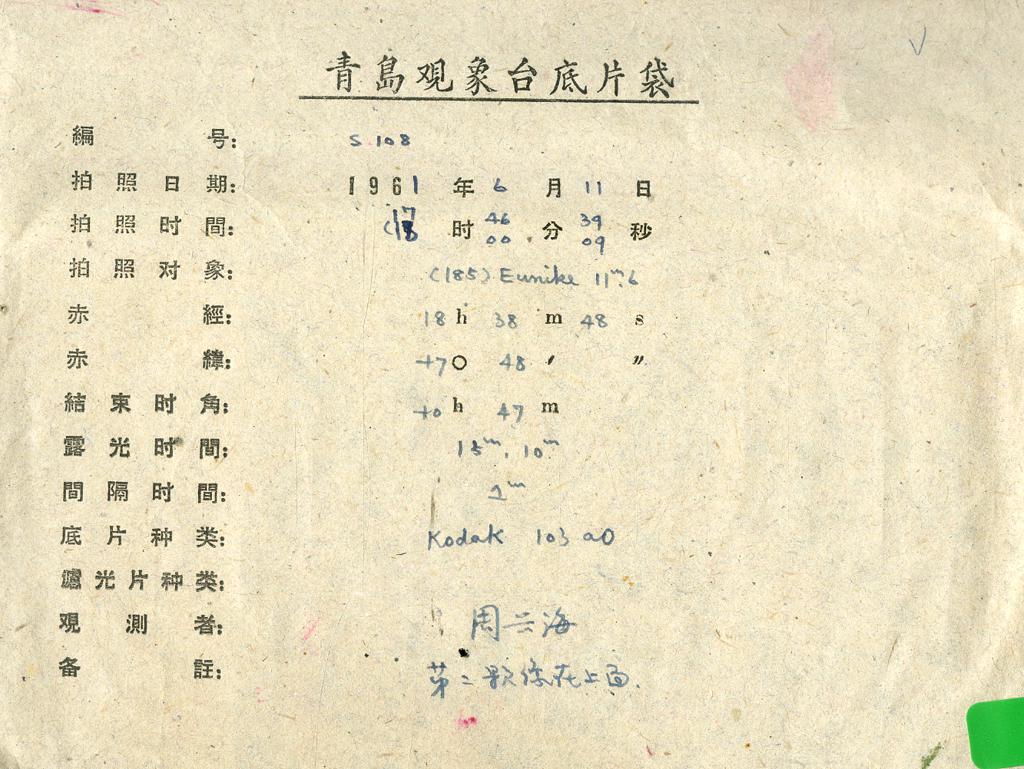 青島观象台底片袋
編号: S.108
拍照日期: 1961年6月11日
拍照时間: 时46分39秒
00 09
拍照对象: (185) Eunike 11ᵐ.6
赤經: 18h 38m 48s
赤緯: +7° 48′ ″
結束时角: +0h 47m
露光时間: 15ᵐ, 10ᵐ
間隔时間: 2ᵐ
底片种类: Kodak 103 aO
濾光片种类:
观測者: 周兴海
备註: 第二颗像在上面.